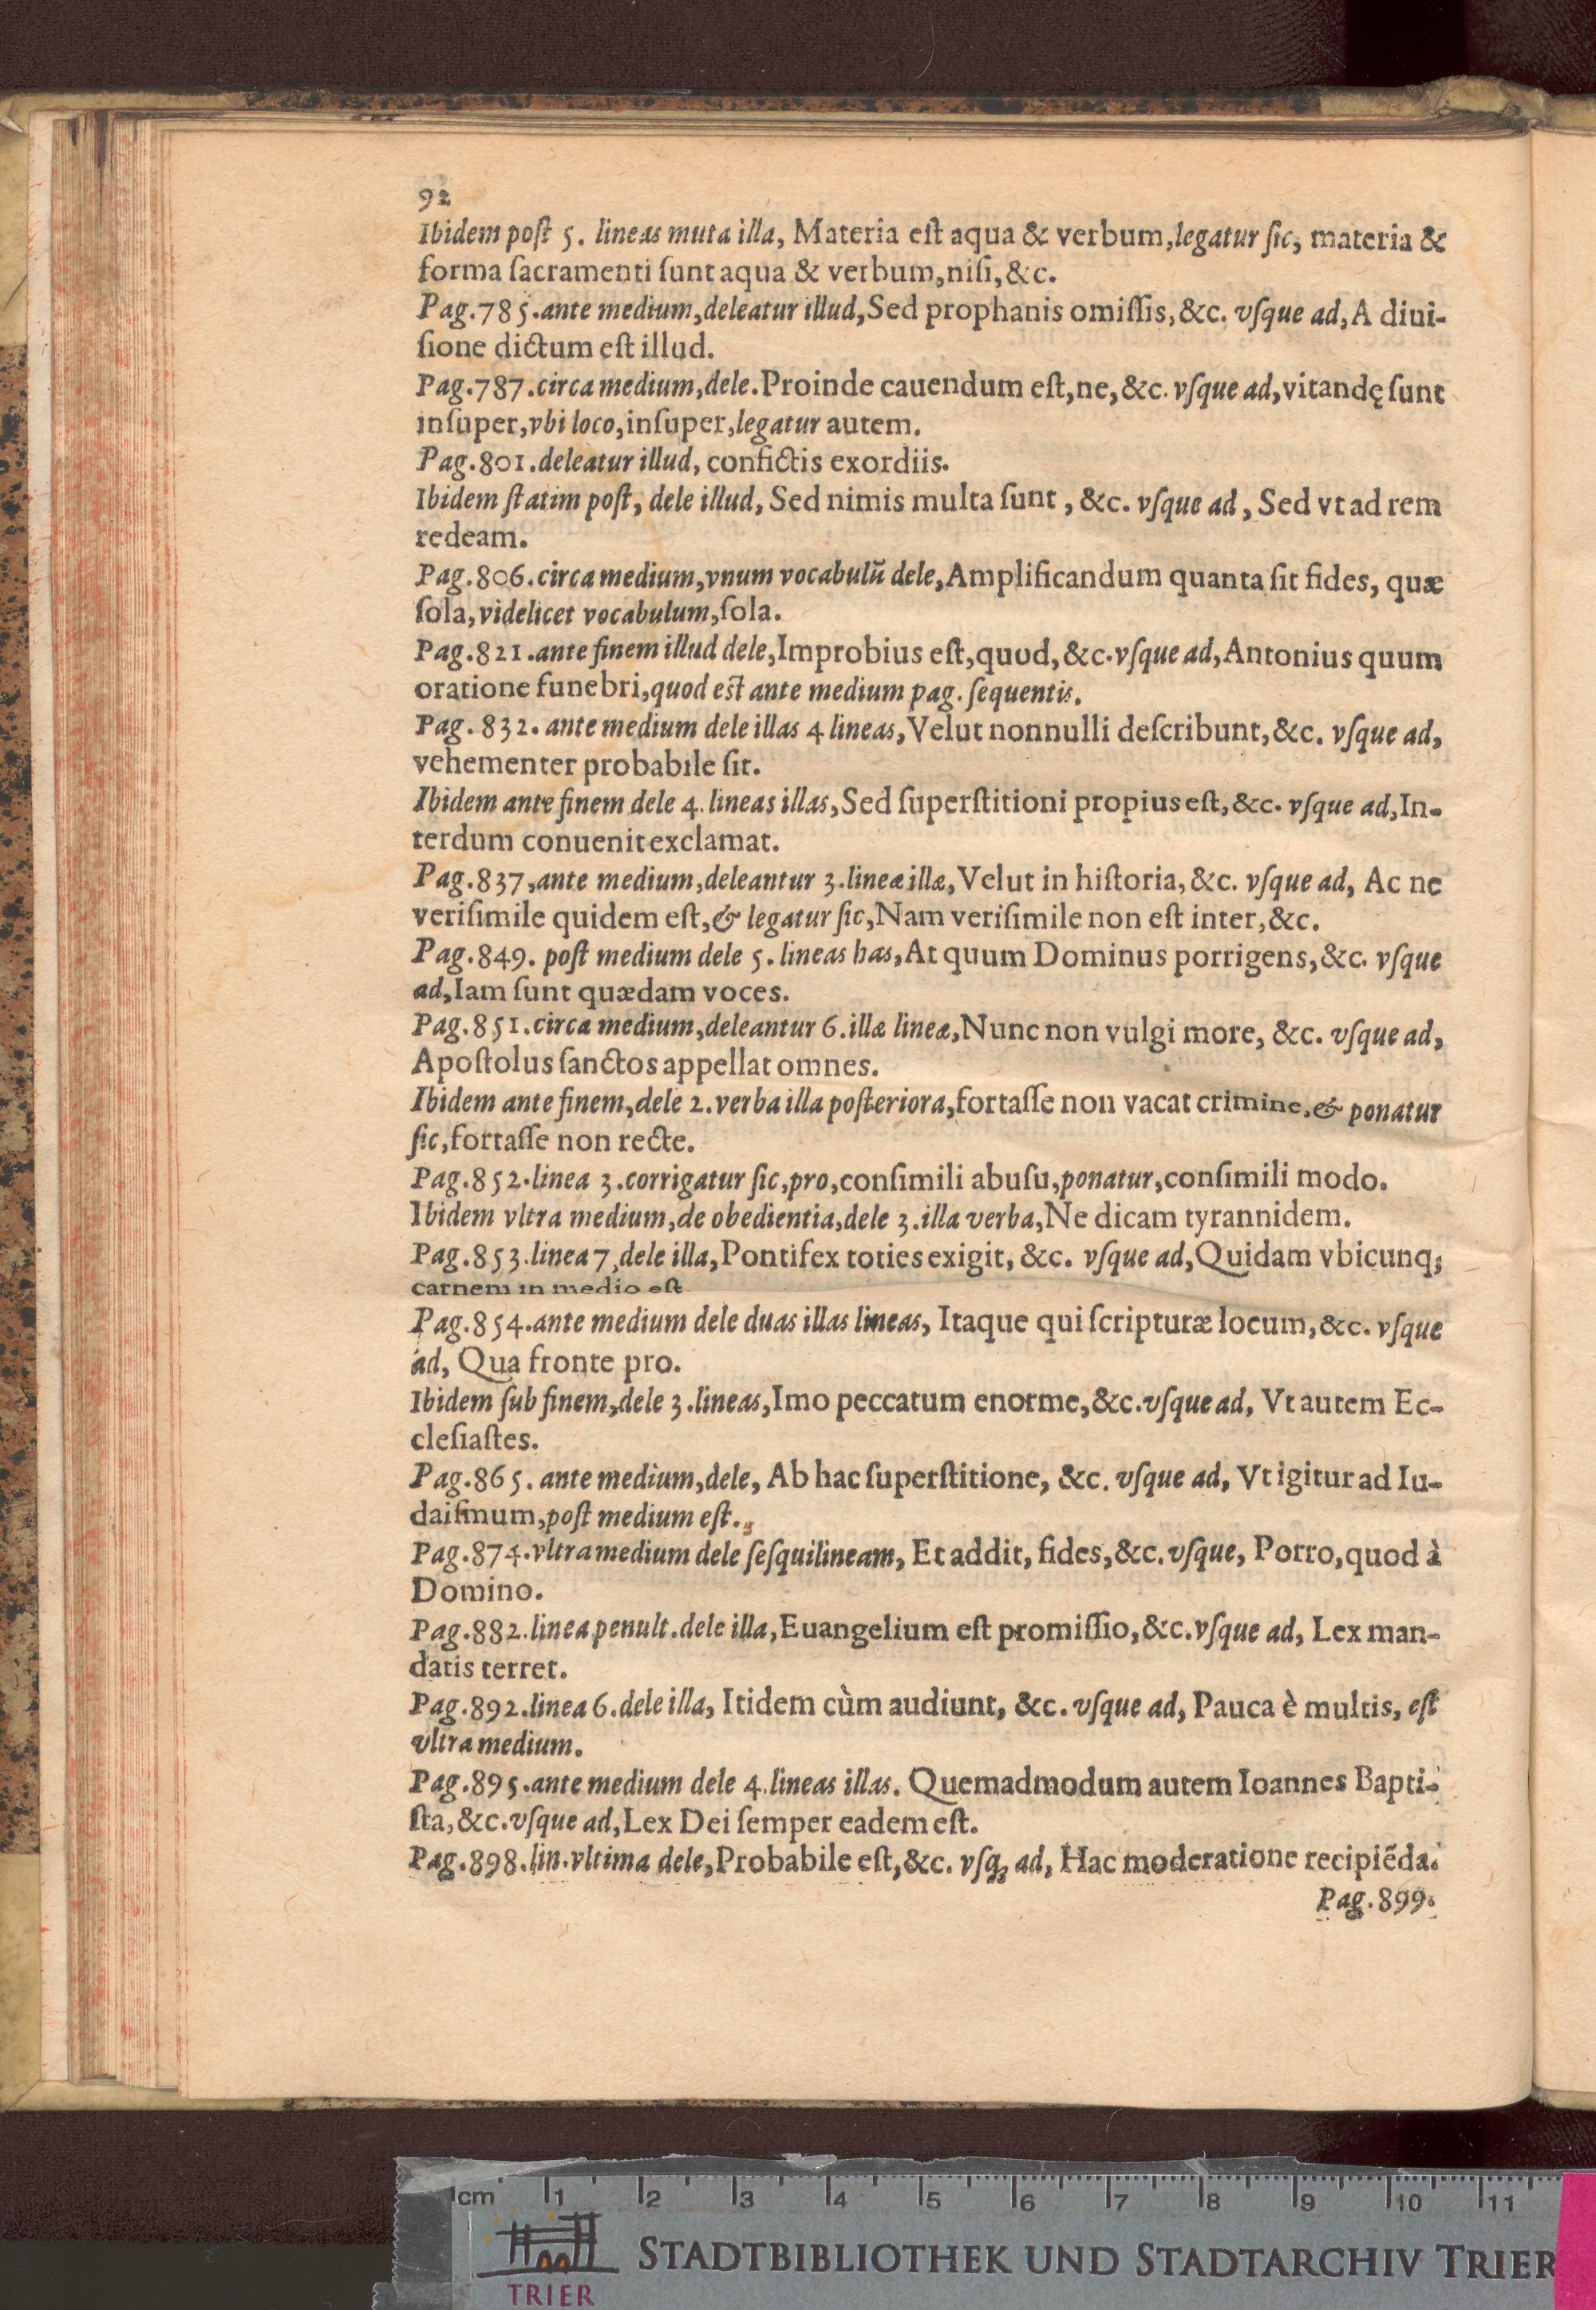 92
Ibidem poſt 5. lineas muta illa, Materia eſt aqua & verbum, legatur ſic, materia &
forma ſacramenti ſunt aqua & verbum, niſi, &c.
Pag. 785. ante medium, deleatur illud, Sed prophanis omiſſis, &c. vſque ad, A diui-
ſione dictum eſt illud.
Pag. 787. circa medium, dele. Proinde cauendum eſt, ne, &c. vſque ad, vitandę ſunt
inſuper, vbi loco, inſuper, legatur autem.
Pag. 801. deleatur illud, confictis exordiis.
Ibidem ſtatim poſt, dele illud, Sed nimis multa ſunt, &c. vſque ad, Sed vt ad rem
redeam.
Pag. 806. circa medium, vnum vocabulũ dele, Amplificandum quanta ſit fides, quæ
ſola, videlicet vocabulum, ſola.
Pag. 821. ante finem illud dele, Improbius eſt, quod, &c. vſque ad, Antonius quum
oratione funebri, quod eſt ante medium pag. ſequentis.
Pag. 832. ante medium dele illas 4 lineas, Velut nonnulli deſcribunt, &c. vſque ad,
vehementer probabile ſit.
Ibidem ante finem dele 4. lineas illas, Sed ſuperſtitioni propius eſt, &c. vſque ad, In-
terdum conuenit exclamat.
Pag. 837, ante medium, deleantur 3. lineæ illæ, Velut in hiſtoria, &c. vſque ad, Ac ne
veriſimile quidem eſt, & legatur ſic, Nam veriſimile non eſt inter, &c.
Pag. 849. poſt medium dele 5. lineas has, At quum Dominus porrigens, &c. vſque
ad, Iam ſunt quædam voces.
Pag. 851. circa medium, deleantur 6. illæ lineæ, Nunc non vulgi more, &c. vſque ad,
Apoſtolus ſanctos appellat omnes.
Ibidem ante finem, dele 2. verba illa poſteriora, fortaſſe non vacat crimine, & ponatur
ſic, fortaſſe non recte.
Pag. 852. linea 3. corrigatur ſic, pro, conſimili abuſu, ponatur, conſimili modo.
Ibidem vltra medium, de obedientia, dele 3. illa verba, Ne dicam tyrannidem.
Pag. 853. linea 7, dele illa, Pontifex toties exigit, &c. vſque ad, Quidam vbicunq;
carnem in medio eſt
Pag. 854. ante medium dele duas illas lineas, Itaque qui ſcripturæ locum, &c. vſque
ad, Qua fronte pro.
Ibidem ſub finem, dele 3. lineas, Imo peccatum enorme, &c. vſque ad, Vt autem Ec-
cleſiaſtes.
Pag. 865. ante medium, dele, Ab hac ſuperſtitione, &c. vſque ad, Vt igitur ad Iu-
daiſmum, poſt medium eſt.
Pag. 874. vltra medium dele ſeſquilineam, Et addit, fides, &c. vſque, Porro, quod à
Domino.
Pag. 882. linea penult. dele illa, Euangelium eſt promiſſio, &c. vſque ad, Lex man-
datis terret.
Pag. 892. linea 6. dele illa, Itidem cùm audiunt, &c. vſque ad, Pauca è multis, eſt
vltra medium.
Pag. 895. ante medium dele 4. lineas illas. Quemadmodum autem Ioannes Bapti-
ſta, &c. vſque ad, Lex Dei ſemper eadem eſt.
Pag. 898. lin. vltima dele, Probabile eſt, &c. vſq; ad, Hac moderatione recipiẽda.
Pag. 899.
cm 1 2 3 4 5 6 7 8 9 10 11
STADTBIBLIOTHEK UND STADTARCHIV TRIER
TRIER